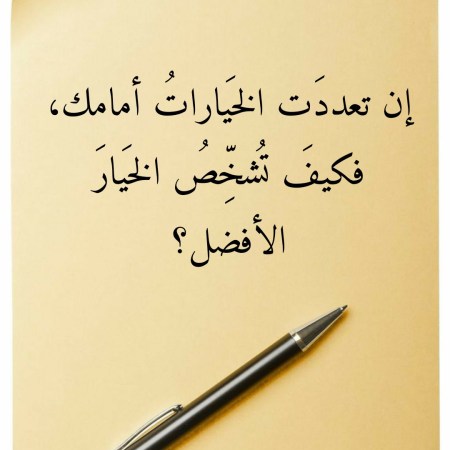 إن تعددَت الخَياراتُ أمامك،
فكيفَ تُشخِّصُ الخَيارَ
الأفضل؟